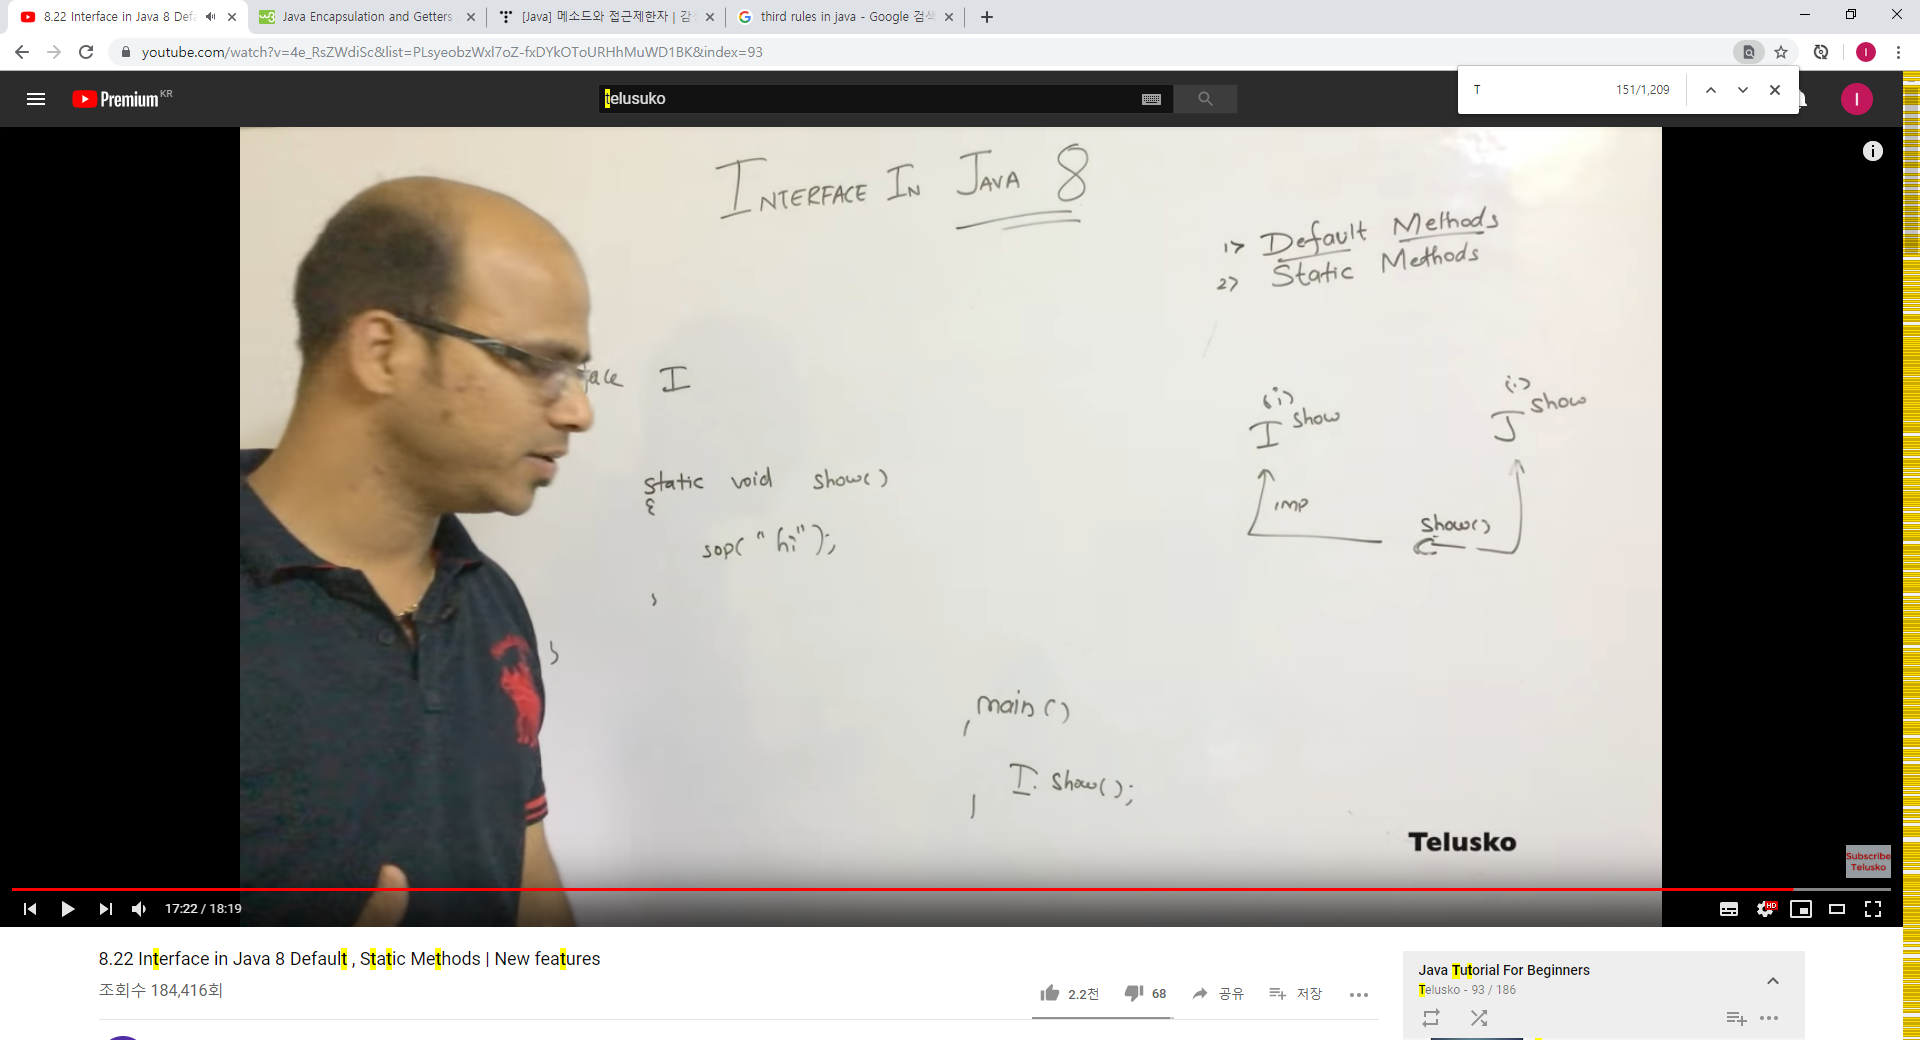 8.22 Interface in Java 8 Defa
Java Encapsulation and Getters
[Java] 메소드와 접근제한자 | 감
third rules in java - Google 검색
youtube.com/watch?v=4e_RsZWdiSc&list=PLsyeobzWxl7oZ-fxDYkOToURHhMuWD1BK&index=93
T
151/1,209
Premium KR
telusuko
I
INTERFACE IN JAVA 8
1> Default Methods
2> Static Methods
face I
static void show()
{
sop("hi");
}
}
main()
I. show();
(i)
I show
(i)
J show
imp
show()
Telusko
Subscribe
Telusko
17:22 / 18:19
HD
8.22 Interface in Java 8 Default , Static Methods | New features
조회수 184,416회
2.2천
68
공유
저장
Java Tutorial For Beginners
Telusko - 93 / 186